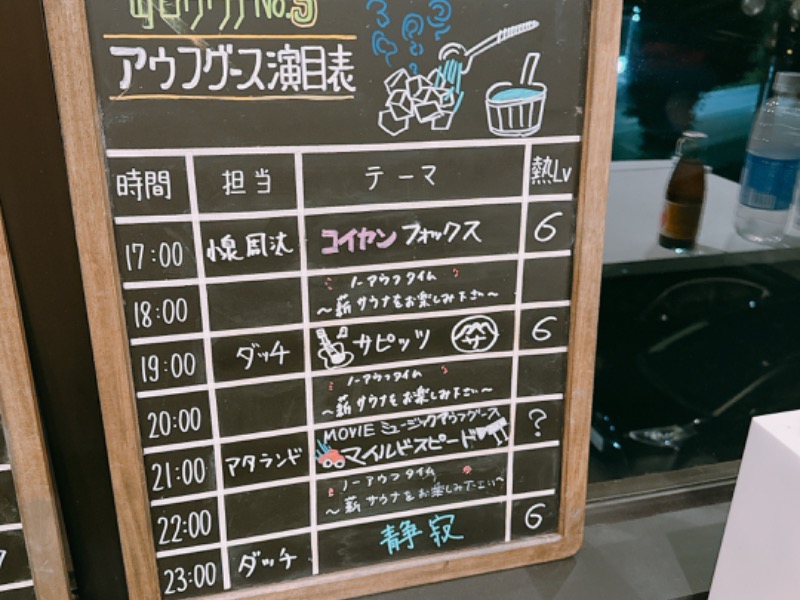 No.3
アウフグース演目表
時間 担当 テーマ 熱Lv
17:00 コイヤンフォックス 6
18:00 ノーアウフタイム
～薪サウナをお楽しみ下さい～
19:00 ダッチ サピッツ サ 6
20:00 ノーアウフタイム
～薪サウナをお楽しみ下さい～
MOVIE ミュージックアウフグース
21:00 アタランド マイルドスピード ?
22:00 ノーアウフタイム
～薪サウナをお楽しみ下さい～
23:00 ダッチ 静寂 6